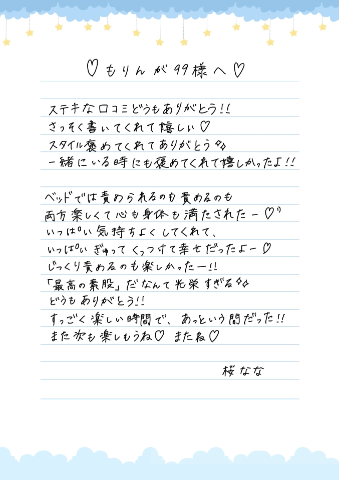 ♡もりんが99様へ♡
ステキな口コミどうもありがとう!!
さっそく書いてくれて嬉しい♡
スタイル褒めてくれてありがとう✨
一緒にいる時にも褒めてくれて嬉しかったよ!!
ベッドでは責められるのも責めるのも
両方楽しくて心も身体も満たされたー♡
いっぱい気持ちよくしてくれて、
いっぱいぎゅってくっつけて幸せだったよー♡
じっくり責めるのも楽しかったー!!
「最高の素股」だなんて光栄すぎる✨
どうもありがとう!!
すっごく楽しい時間で、あっという間だった!!
また次も楽しもうね♡ またね♡
桜なな